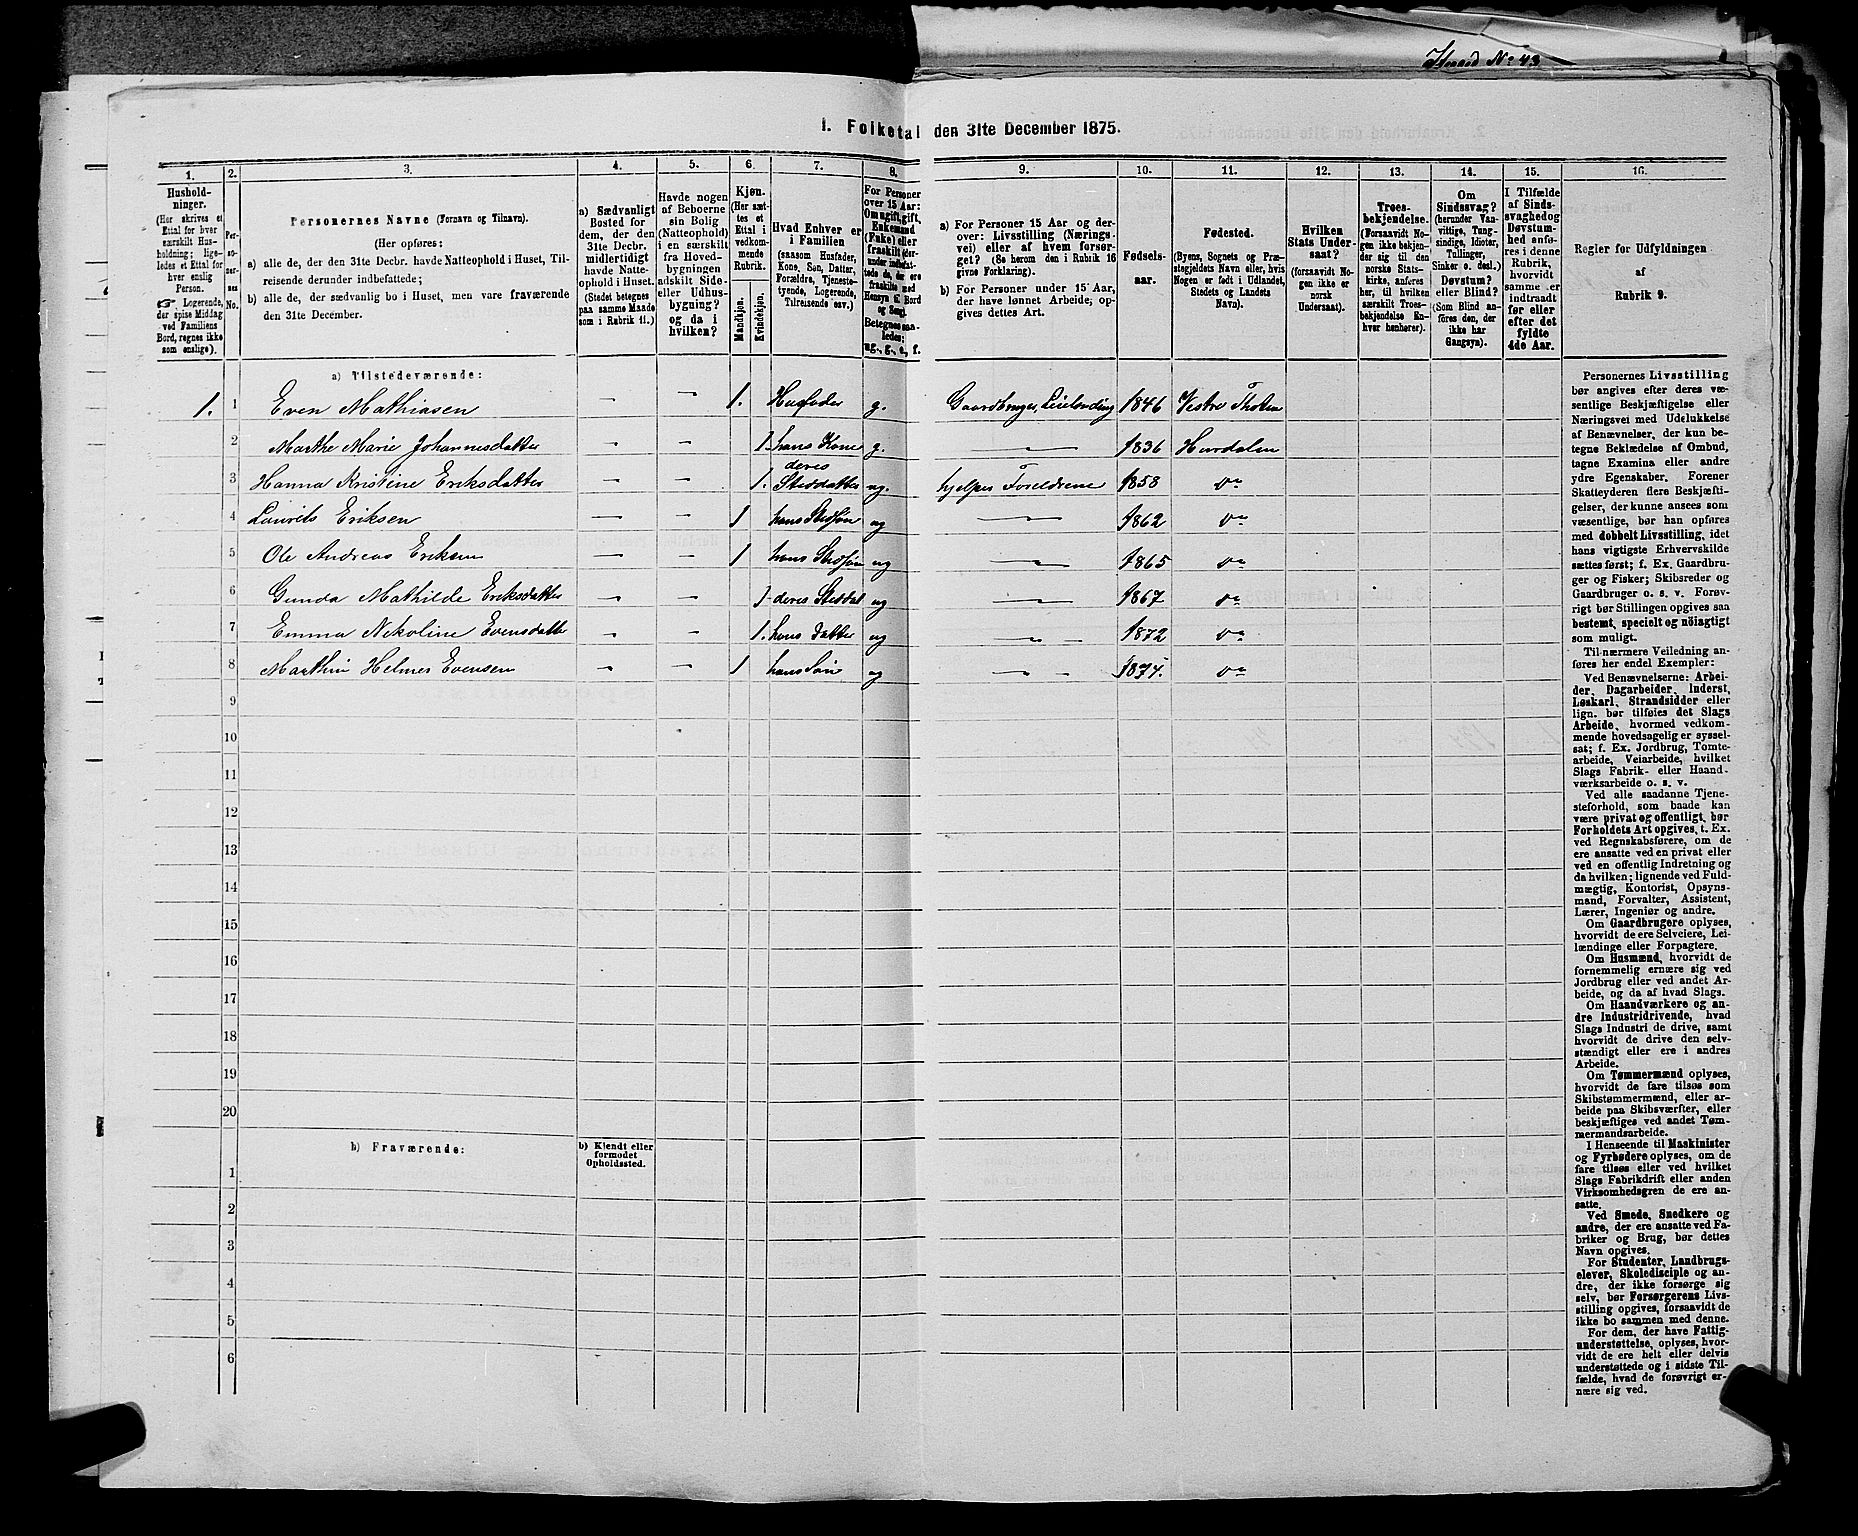 Herred No 43
1. Folketal den 31te December 1875.
1.
2.
3.
4.
5.
6.
7.
8.
9.
10.
11.
12.
13.
14.
15.
16.
Hushold-
ninger.
(Her skrives et
Ettal for hver
særskilt Hus-
holdning; lige-
ledes et Ettal for
hver enslig
Person.
☞ Logerende,
der spise Middag
ved Familiens
Bord, regnes ikke
som enslige).
Per-
so-
ner-
nes
No.
Personernes Navne (Fornavn og Tilnavn).
(Her opføres:
a) alle de, der den 31te Decbr. havde Natteophold i Huset, Til-
reisende derunder indbefattede;
b) alle de, der sædvanlig bo i Huset, men vare fraværende
den 31te December.
a) Sædvanligt
Bosted for
dem, der den
31te Decbr.
midlertidigt
havde Natte-
ophold i Huset.
(Stedet betegnes
paa samme Maade
som i Rubrik 11.)
Havde nogen
af Beboerne
sin Bolig
(Natteophold)
i en særskilt
fra Hoved-
bygningen
adskilt Side-
eller Udhus-
bygning?
og da i
hvilken?
Kjøn.
(Her sæt-
tes et
Ettal i
vedkom-
mende
Rubrik.
Mandkjøn.
Kvindekjøn.
Hvad Enhver er
i Familien
(saasom Husfader,
Kone, Søn, Datter,
Forældre, Tjeneste-
tyende, Logerende,
Tilreisende osv.)
For Personer
over 15 Aar:
Om ugift, gift,
Enkemand
(Enke) eller
fraskilt
Betegnes saa-
ledes:
ug., g., e., f.
a) For Personer 15 Aar og der-
over: Livsstilling (Nærings-
vei) eller af hvem forsør-
get? (Se herom den i Rubrik 16
givne Forklaring).
b) For Personer under 15 Aar,
der have lønnet Arbeide, op-
gives dettes Art.
Fødsels-
aar.
Fødested.
(Byens, Sognets og Præ-
stegjeldets Navn eller, hvis
Nogen er født i Udlandet,
Stedets og Landets
Navn).
Hvilken
Stats Under-
saat?
(forsaavidt No-
gen ikke er
norsk
Undersaat).
Troes-
bekjendelse.
(Forsaavidt No-
gen ikke bekjen-
der sig til den
norske Stats-
kirke, anføres
her, til hvilken
særskilt Troes-
bekjendelse En-
hver henhører).
Om
Sindssvag?
(herunder Van-
vittige, Tung-
sindige, Idioter,
Tullinger,
Sinker o. desl.)
Døvstum?
eller Blind?
(Som Blind an-
føres den, der
ikke har
Gangsyn).
I Tilfælde
af Sinds-
svaghed og
Døvstum-
hed anfø-
res i denne
Rubrik,
hvorvidt
samme er
indtraadt
før eller
efter det
fyldte
4de Aar.
Regler for Udfyldningen
af
Rubrik 9.
a) Tilstedeværende:
1. 1 Even Mathiasen — — 1. Husfader g. Gaardbruger, Leielænding 1846 Vestre Thoten
2 Marthe Marie Johannesdatter — — 1. hans Kone g. — 1836 Hurdalen
3 Hanna Kristine Eriksdatter — — 1. deres Steddatter ug. hjelper Foreldrene 1858 do
4 Laurits Eriksen — — 1 hans Stedsøn ug — 1862 do
5 Ole Andreas Eriksen — — 1 hans Stedsøn ug — 1865 do
6 Gunda Mathilde Eriksdatter — — 1 deres Steddat ug — 1867 do
7 Emma Nikoline Evensdatter — — 1. hans Datter ug — 1872 do
8 Marthin Helmer Evensen — — 1 hans Søn ug — 1874. do
9
10
11
12
13
14
15
16
17
18
19
20
b) Fraværende:
b) Kjendt eller
formodet
Opholdssted.
1
2
3
4
5
6
Personernes Livsstilling
bør angives efter deres væ-
sentlige Beskjæftigelse eller
Næringsvei med Udelukkelse
af Benævnelser, der kun be-
tegne Beklædelse af Ombud,
tagne Examina eller andre
ydre Egenskaber. Forener
Skatteyderen flere Beskjæfti-
gelser, der kunne ansees som
væsentlige, bør han opføres
med dobbelt Livsstilling, idet
hans vigtigste Erhvervskilde
sættes først; f. Ex. Gaardbru-
ger og Fisker; Skibsreder og
Gaardbruger o. s. v. Forøv-
rigt bør Stillingen opgives saa
bestemt, specielt og nøiagtigt
som muligt.
Til nærmere Veiledning an-
føres her endel Exempler:
Ved Benævnelserne: Arbei-
der, Dagarbeider, Inderst,
Løskarl, Strandsidder eller
lign. bør tilføies det Slags
Arbeide, hvormed vedkom-
mende hovedsagelig er syssel-
sat; f. Ex. Jordbrug, Tomte-
arbeide, Veiarbeide, hvilket
Slags Fabrik- eller Haand-
værksarbeide o. s. v.
Ved alle saadanne Tjene-
steforhold, som baade kan
være privat og offentligt, bør
Forholdets Art opgives, t. Ex.
ved Regnskabsførere, om de
ere ansatte ved en privat eller
ved en offentlig Indretning og
da hvilken; lignende ved Fuld-
mægtig, Kontorist, Opsyns-
mand, Forvalter, Assistent,
Lærer, Ingeniør og andre.
Om Gaardbrugere oplyses,
hvorvidt de ere Selveiere, Lei-
lændinge eller Forpagtere.
Om Husmænd, hvorvidt de
fornemmelig ernære sig ved
Jordbrug eller ved andet Ar-
beide, og da af hvad Slags.
Om Haandværkere og an-
dre Industridrivende, hvad
Slags Industri de drive, samt
hvorvidt de drive den selv-
stændigt eller ere i andres
Arbeide.
Om Tømmermænd oplyses,
hvorvidt de fare tilsøs som
Skibstømmermænd, eller ar-
beide paa Skibsværfter, eller
beskjæftiges ved andet Tøm-
mermandsarbeide.
I Henseende til Maskinister
og Fyrbødere oplyses, om de
fare tilsøs eller ved hvilket
Slags Fabrikdrift eller anden
Virksomhedsgren de ere an-
satte.
Ved Smede, Snedkere og
andre, der ere ansatte ved Fa-
briker og Brug, bør dettes
Navn opgives.
For Studenter, Landbrugs-
elever, Skoledisciple og an-
dre, der ikke forsørge sig
selv, bør Forsørgerens Livs-
stilling opgives, forsaavidt de
ikke bo sammen med denne.
For dem, der have Fattig-
understøttelse, oplyses, hvor-
vidt de ere helt eller delvis
understøttede og i sidste Til-
fælde, hvad de forøvrigt er-
nære sig ved.